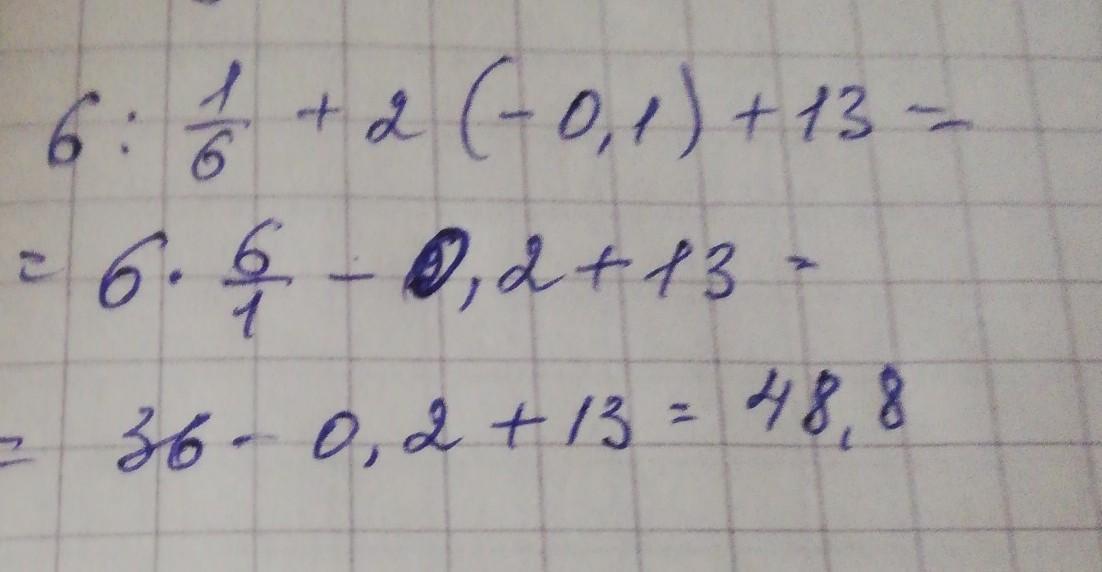 6 : 1/6 + 2 (-0,1) + 13 =
= 6 · 6/1 - 0,2 + 13 =
= 36 - 0,2 + 13 = 48,8